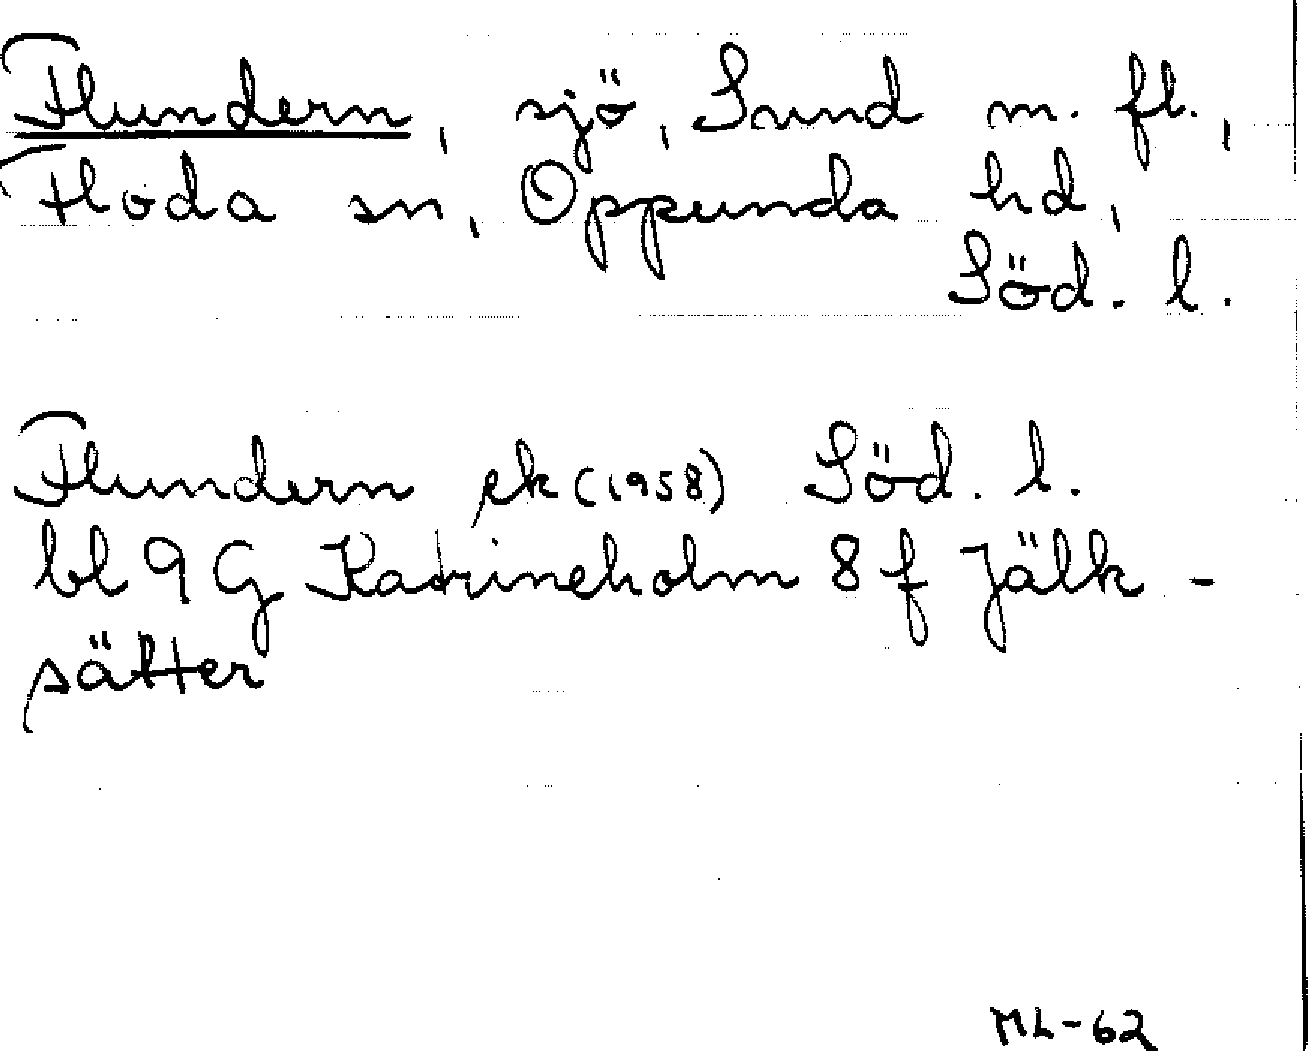 Flundern, sjö, Sund m. fl.,
Floda sn, Oppunda hd,
Söd. l.
Flundern ek (1958) Söd. l.
bl 9 G Katrineholm 8 f Jälk-
sätter
ML-62